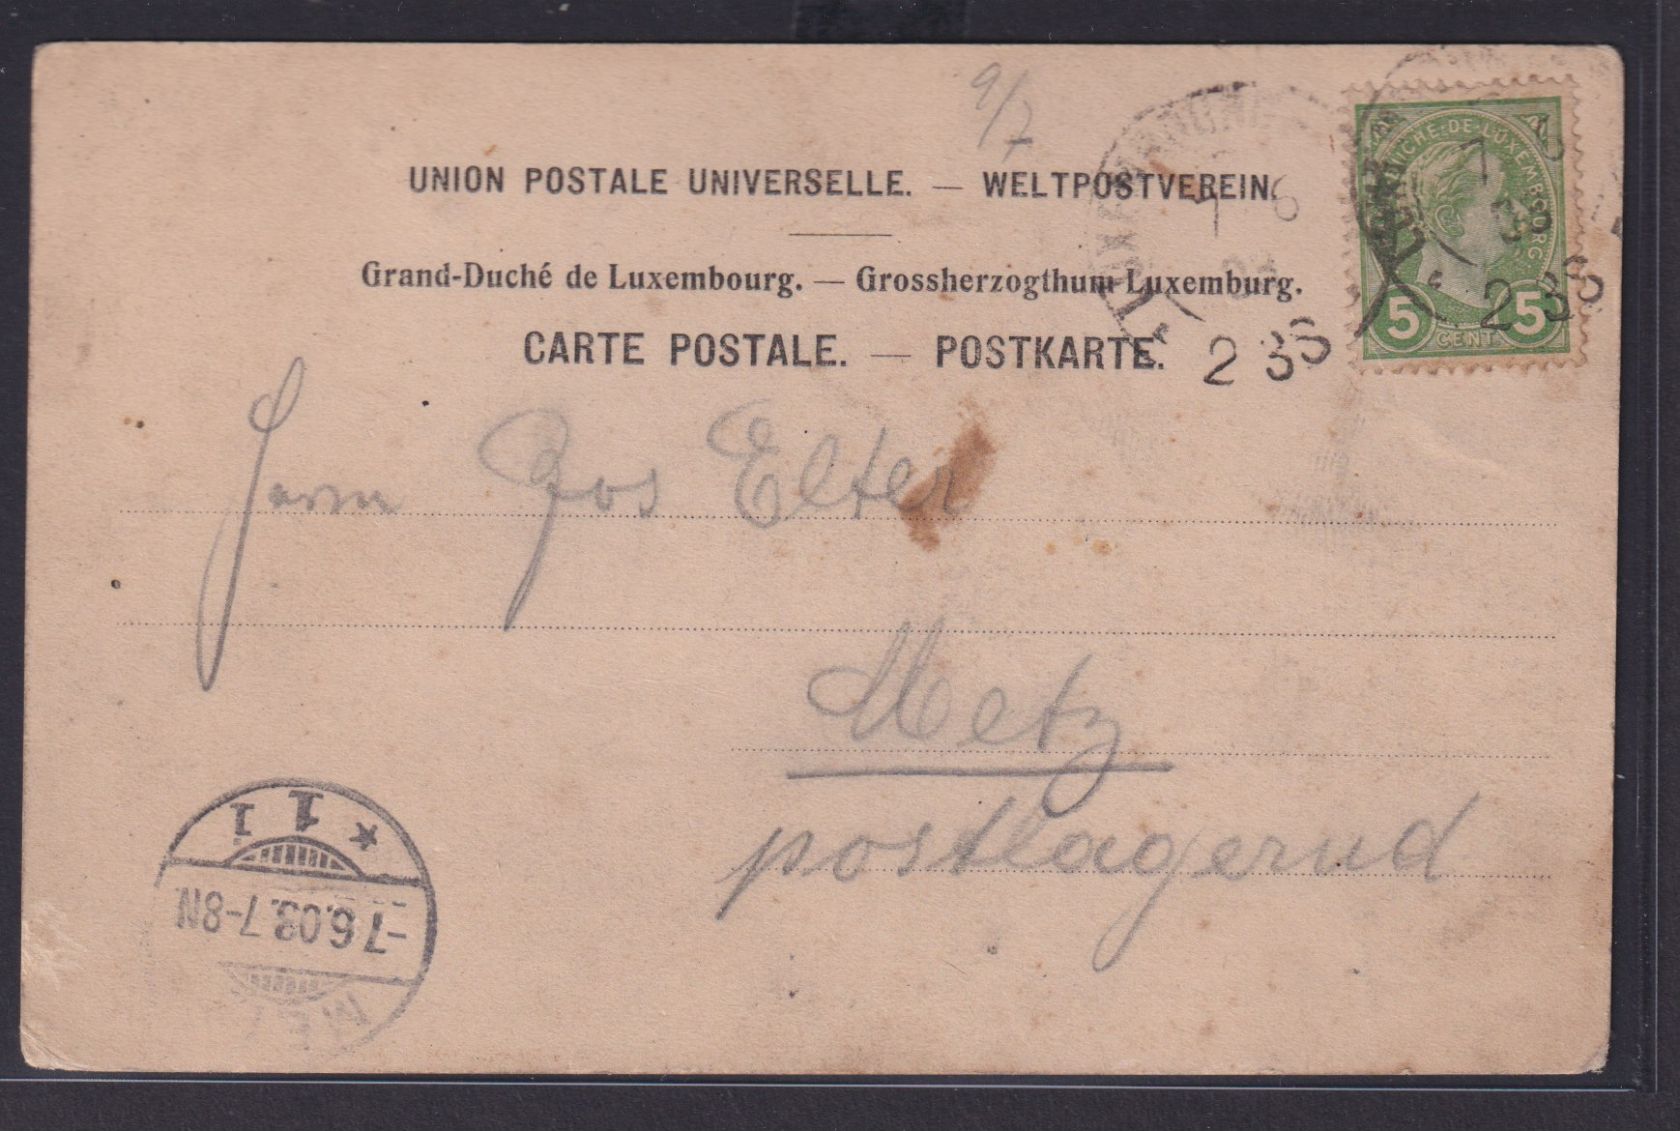 9/7
UNION POSTALE UNIVERSELLE. — WELTPOSTVEREIN.
Grand-Duché de Luxembourg. — Grossherzogthum Luxemburg.
CARTE POSTALE. — POSTKARTE.
DUCHÉ·DE·LUXEMBOURG
5 5
CENT.
7 6
03
2 3 S
7 6
03
2 3 S
Herrn Jos Elter
Metz
postlagernd
* 1 1
-7.6.03.7-8N
ME